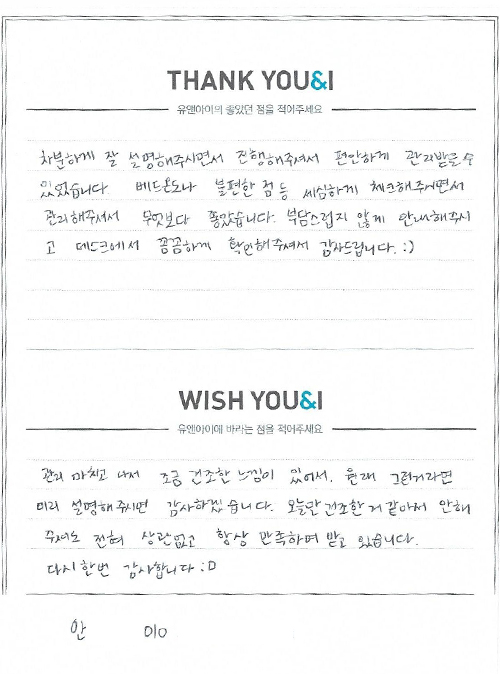 THANK YOU&I
유앤아이의 좋았던 점을 적어주세요
차분하게 잘 설명해주시면서 진행해주셔서 편안하게 관리받을수
있었습니다. 베드온도나 불편한 점 등 세심하게 체크해주시면서
관리해주셔서 무엇보다 좋았습니다. 부담스럽지 않게 안내해주시
고 데스크에서 꼼꼼하게 확인해주셔서 감사드립니다. :)
WISH YOU&I
유앤아이에 바라는 점을 적어주세요
관리 마치고 나서 조금 건조한 느낌이 있어서, 원래 그런거라면
미리 설명해주시면 감사하겠습니다. 오늘만 건조한거 같아서 안해
주셔도 전혀 상관없고 항상 만족하며 받고 있습니다.
다시한번 감사합니다 :D
안 010